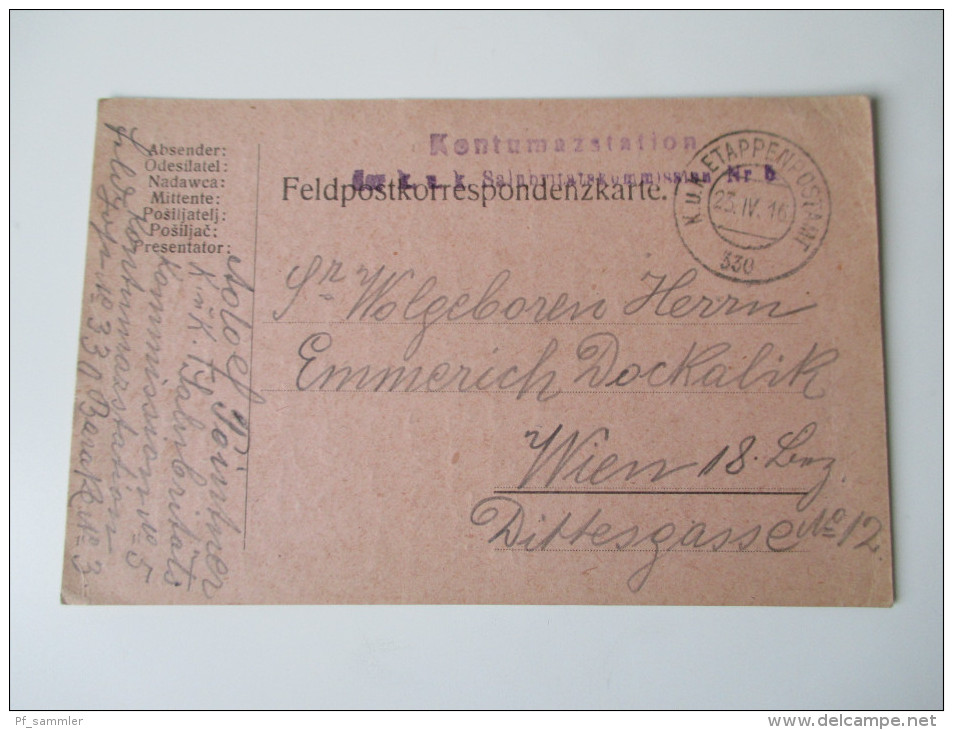 Absender:
Odesilatel:
Nadawca:
Mittente:
Pošiljatelj:
Pošiljač:
Presentator:
Kontumazstation
der k. u. k. Salubritätskommission Nr 5
Feldpostkorrespondenzkarte.
K.U.K. ETAPPENPOSTAMT
23. IV. 16
330
Sr Wolgeboren Herrn
Emmerich Dockalik
Wien 18. Bez.
Dittesgasse No 12.
Adolf
K. u K. Salubritäts
Kommission No 5
Kontumazstation
No 330 Barak No 3
Pf_sammler
http://www.delcampe.net